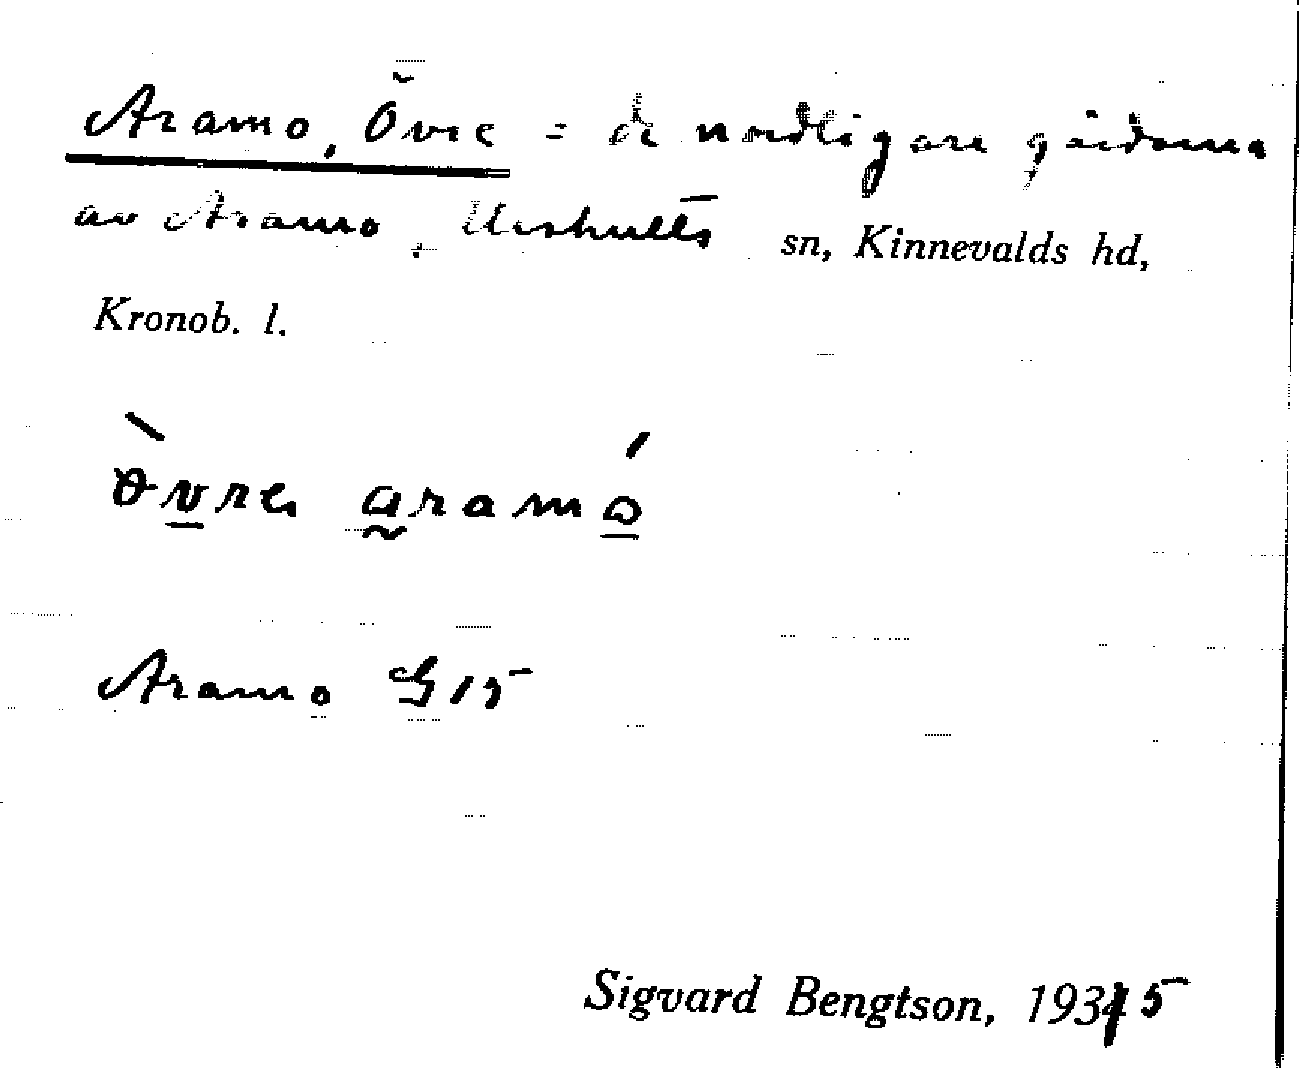 Aramo, Övre = de nordligare gårdarna
av Aramo, Urshults sn, Kinnevalds hd,
Kronob. l.
òvre aramó
Aramo G 15
Sigvard Bengtson, 1935